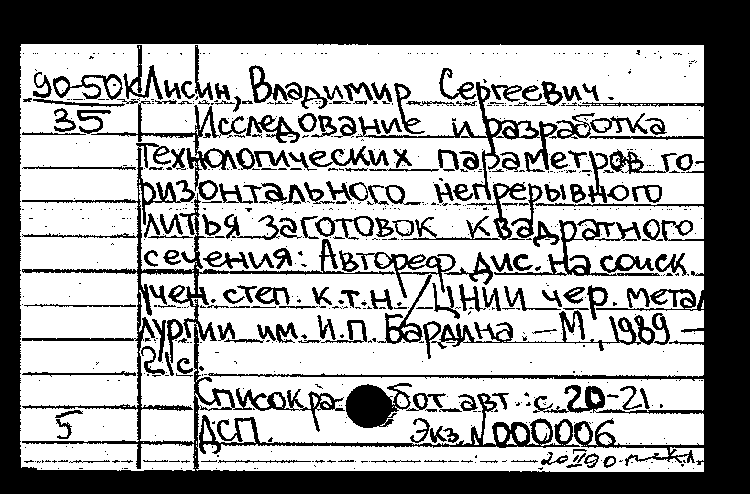 90-50к Лисин, Владимир Сергеевич.
35 Исследование и разработка
технологических параметров го-
ризонтального непрерывного
литья заготовок квадратного
сечения: Автореф. дис. на соиск.
учен. степ. к.т.н. / ЦНИИ чер. метал
лургии им. И.П. Бардина. — М., 1989. —
21с.
Список работ авт.: с. 20-21.
5 ДСП. Экз. N 000006